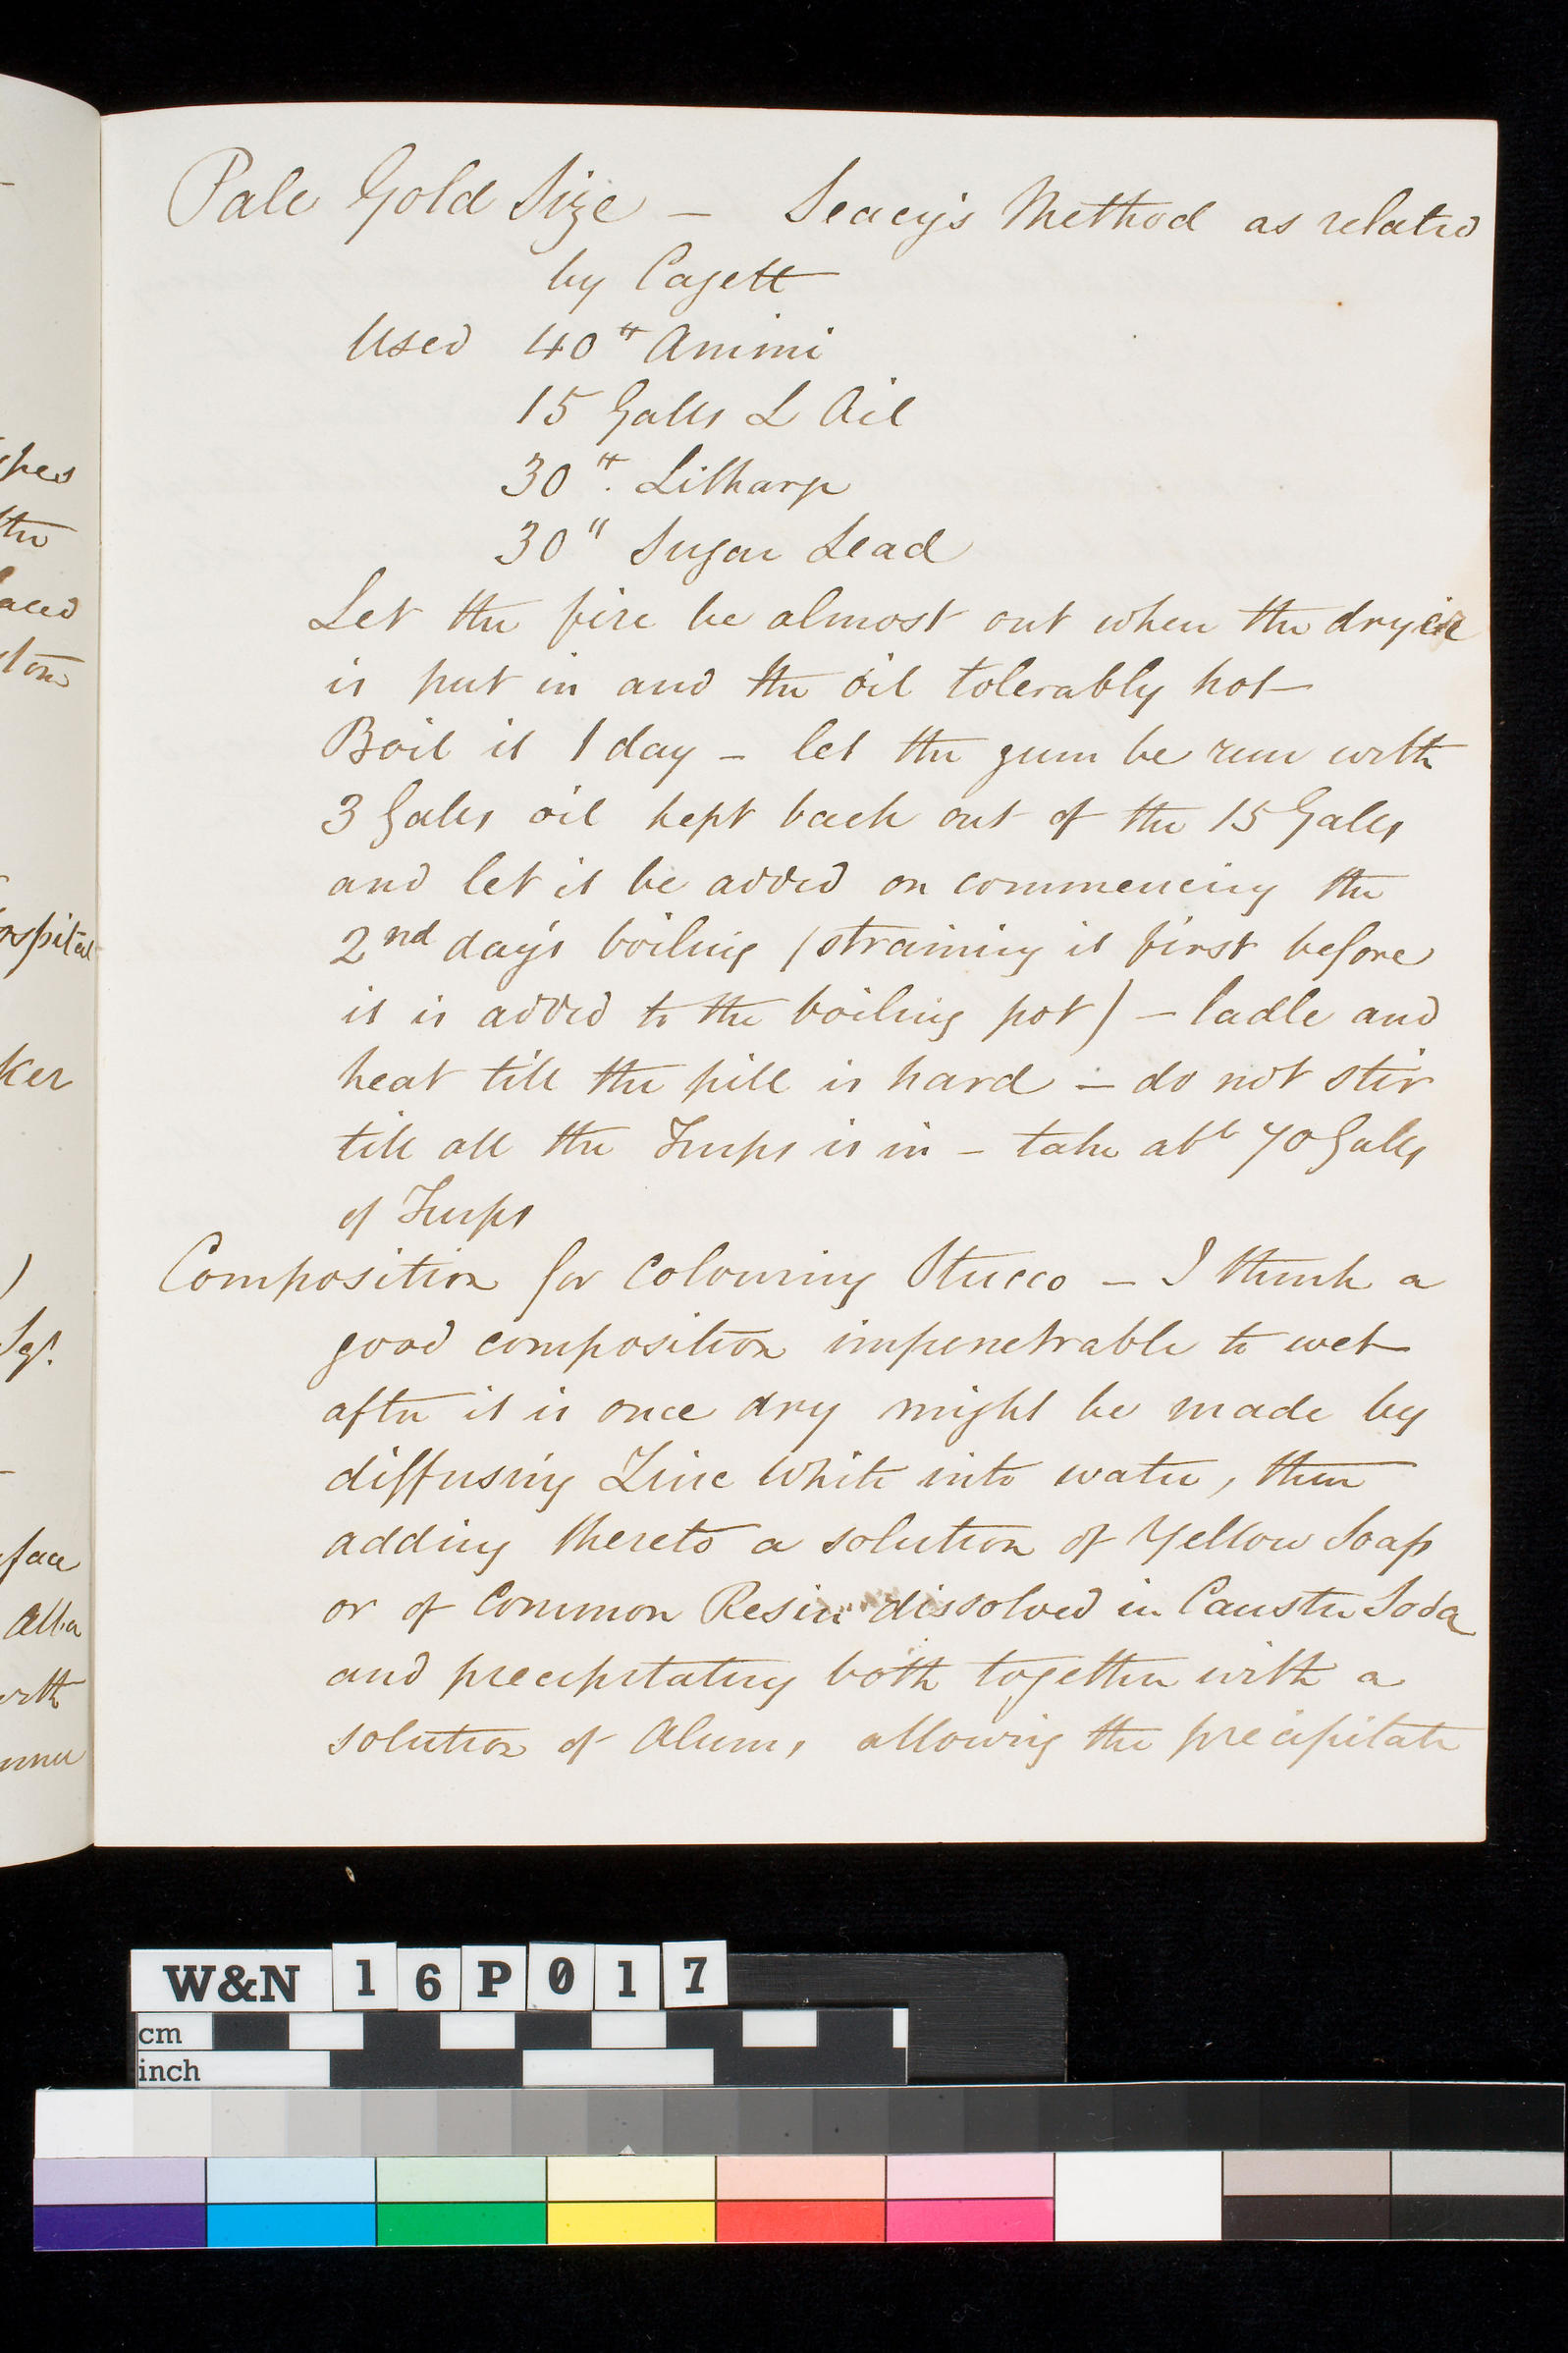 Pale Gold Size — Seacy's Method as related
by Cagett
Used 40 lb Animi
15 Galls L Oil
30 lb. Litharge
30 " Sugar Lead
Let the fire be almost out when the dryer
is put in and the oil tolerably hot
Boil it 1 day — let the gum be run with
3 Galls oil kept back out of the 15 Galls
and let it be added on commencing the
2nd day's boiling (straining it first before
it is added to the boiling pot) — ladle and
heat till the pill is hard — do not stir
till all the Turps is in — take abt 70 Galls
of Turps
Composition for Colouring Stucco — I think a
good composition impenetrable to wet
after it is once dry might be made by
diffusing Zinc White into water, then
adding thereto a solution of Yellow Soap
or of Common Resin dissolved in Caustic Soda
and precipitating both together with a
solution of Alum, allowing the precipitate
pes
the
aced
ospital
ker
)
face
Alba
with
W&N 16P017
cm
inch